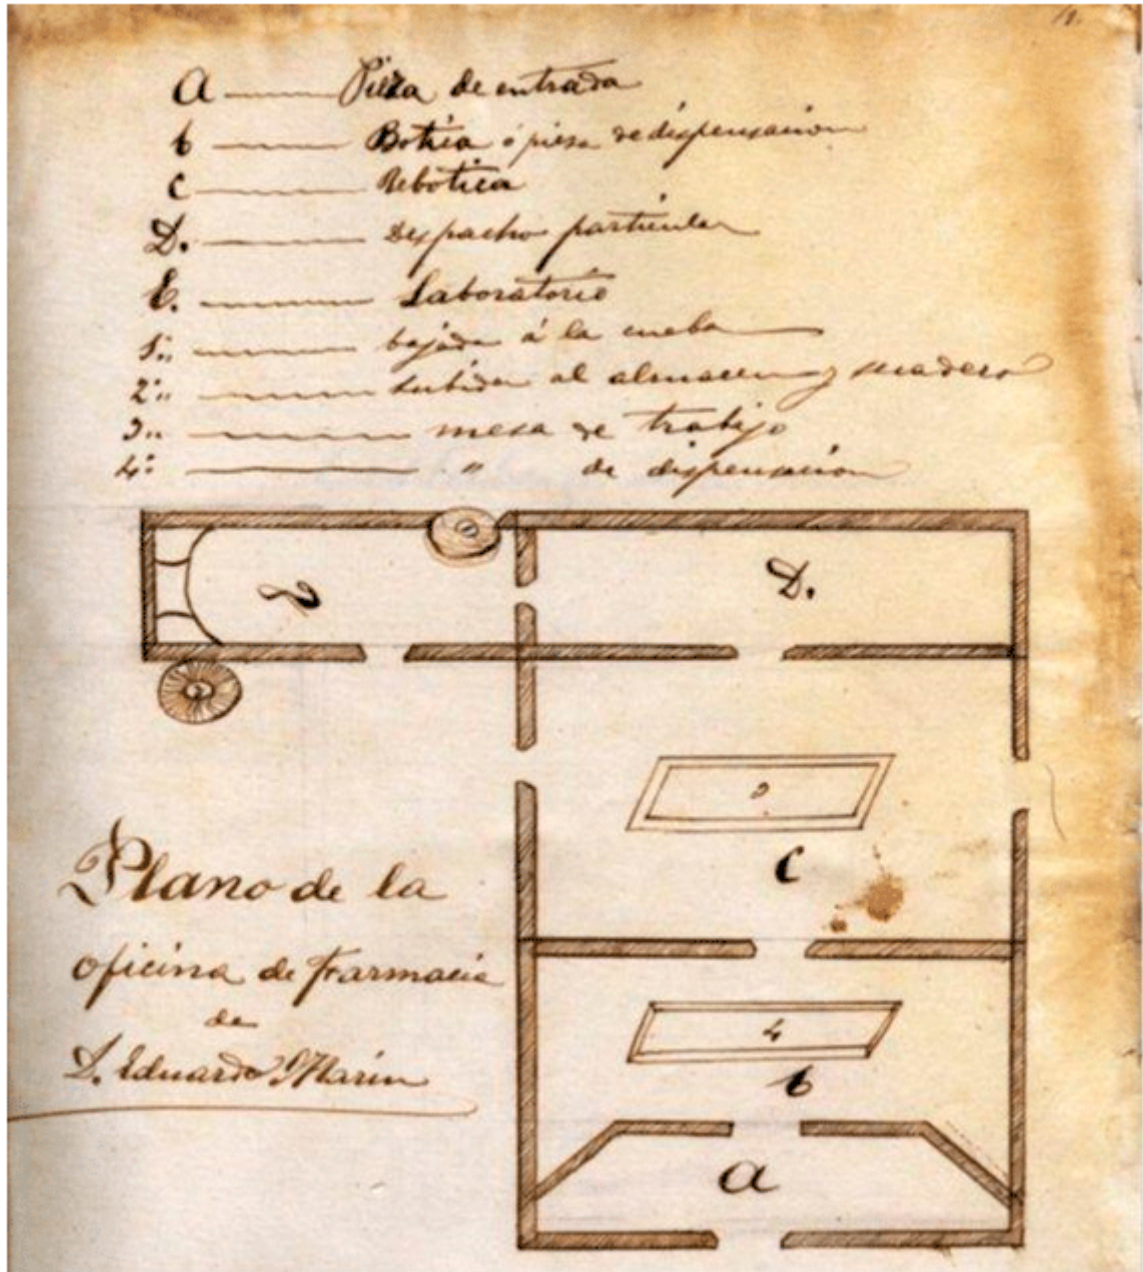 11.
A Pieza de entrada
b Botica ó pieza de dispensacion
C Rebotica
D. Despacho particular
E. Laboratorio
1ª bajada á la cueba
2ª subida al almacen y secadero
3ª mesa de trabajo
4ª " de dispensacion
D.
2
3
C
Plano de la
oficina de Farmacia
de
D. Eduardo Marin
4
b
a